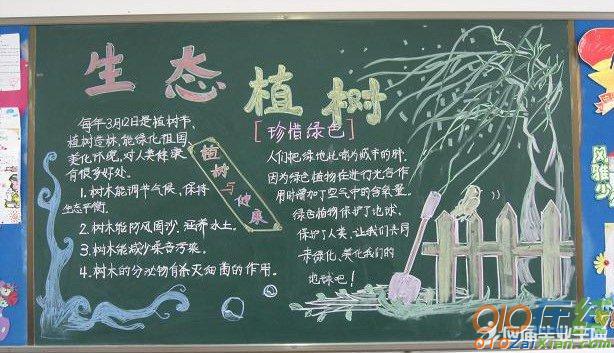 生态植树
每年3月12日是植树节,
植树造林,能绿化祖国
美化环观,对人类健康
有很多好处。
1.树木能调节气候、保持
生态平衡.
2.树木能防风固沙、涵养水土。
3.树木能减少噪音污染。
4.树木的分泌物有杀灭细菌的作用。
植树与健康
[珍惜绿色]
人们把绿地比喻为城市的肺,
因为绿色植物在进行光合作
用时增加了空气中的含氧量。
绿色植物保护了地球,
保护了人类,让我们共同
来绿化、美化我们的
地球吧!
风雅少
910在线
910zaixian.com
应届毕业生网